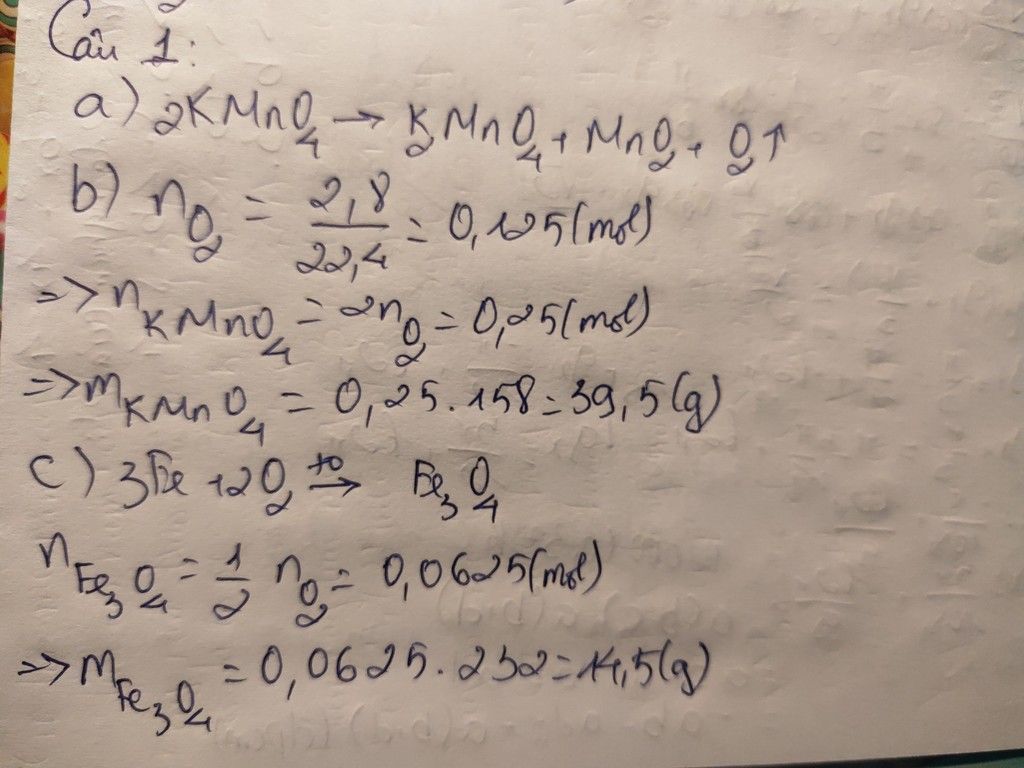 Câu 1:
a) 2KMnO4 → K2MnO4 + MnO2 + O2↑
b) nO2 = 2,8/22,4 = 0,125(mol)
=> nKMnO4 = 2nO2 = 0,25(mol)
=> mKMnO4 = 0,25.158 = 39,5(g)
c) 3Fe + 2O2 →(to) Fe3O4
nFe3O4 = 1/2 nO2 = 0,0625(mol)
=> mFe3O4 = 0,0625.232 = 14,5(g)